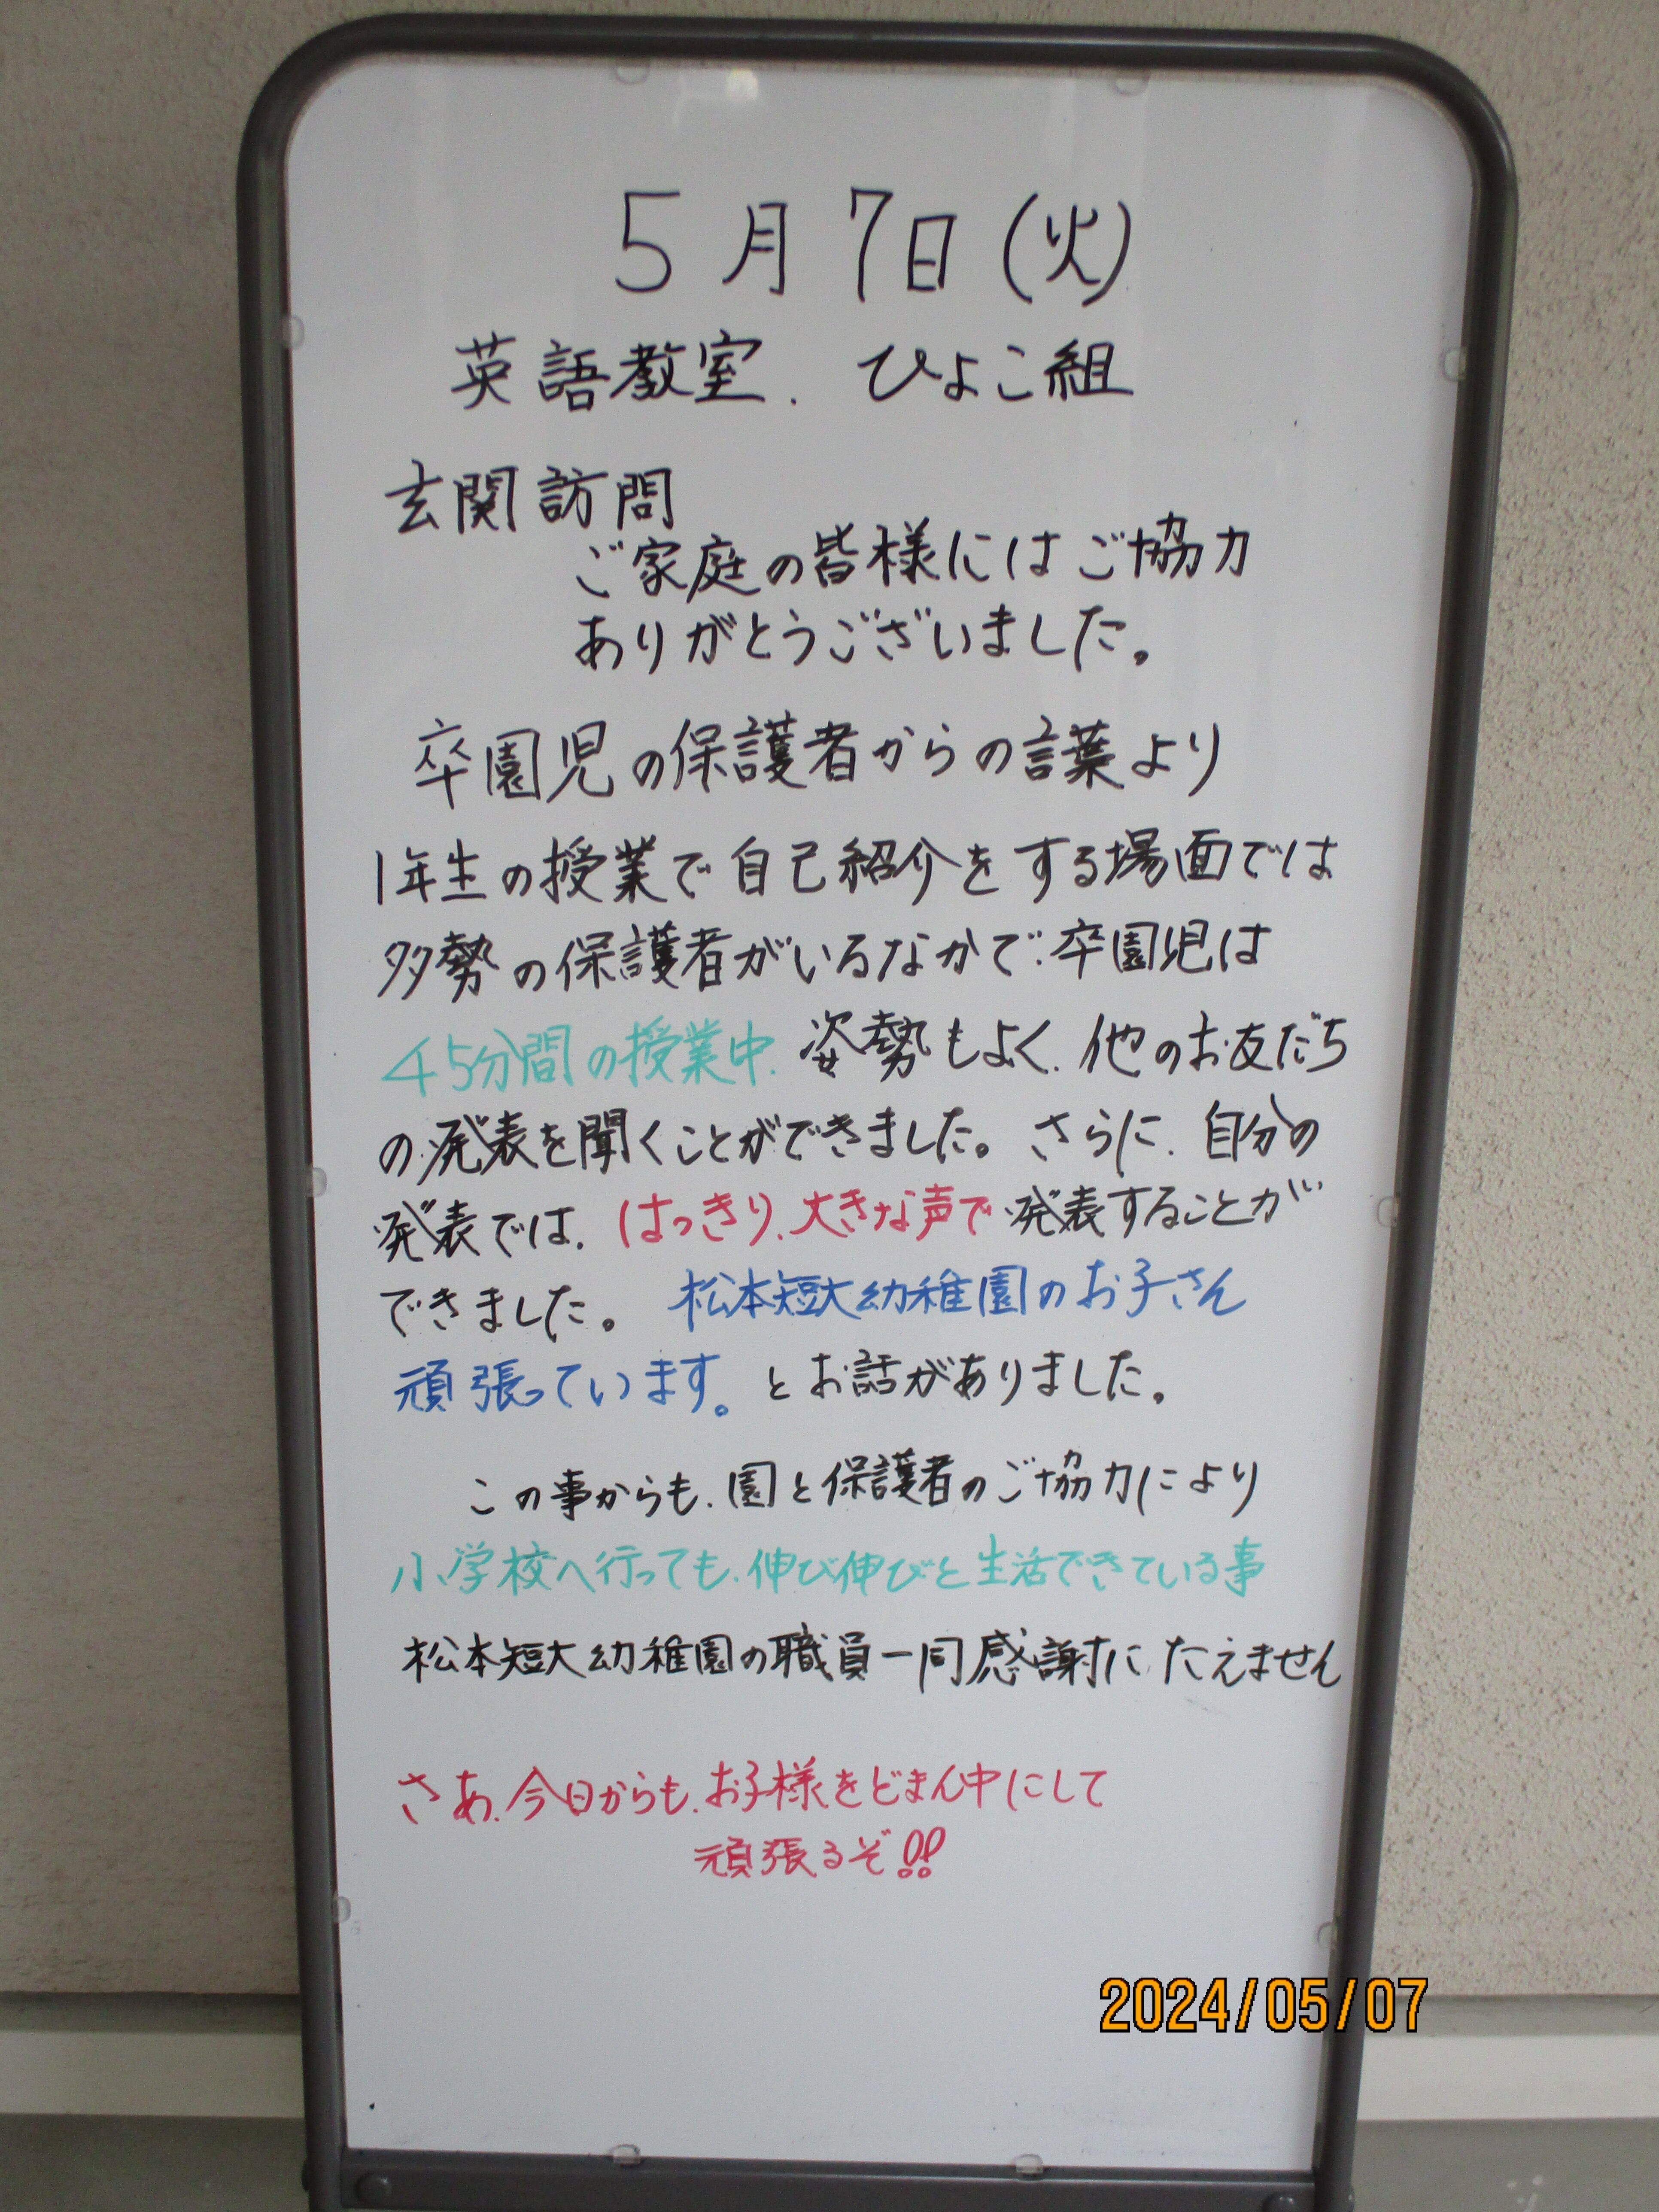 5月7日(火)
英語教室、ひよこ組
玄関訪問
ご家庭の皆様にはご協力
ありがとうございました。
卒園児の保護者からの言葉より
1年生の授業で自己紹介をする場面では
多勢の保護者がいるなかで、卒園児は
45分間の授業中、姿勢もよく、他のお友だち
の発表を聞くことができました。さらに、自分の
発表では、はっきり、大きな声で発表することが
できました。松本短大幼稚園のお子さん
頑張っています。とお話がありました。
この事からも、園と保護者のご協力により
小学校へ行っても、伸び伸びと生活できている事
松本短大幼稚園の職員一同感謝にたえません
さあ、今日からも、お子様をどまん中にして
頑張るぞ!!
2024/05/07